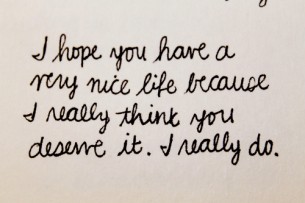 I hope you have a
very nice life because
I really think you
deserve it. I really do.